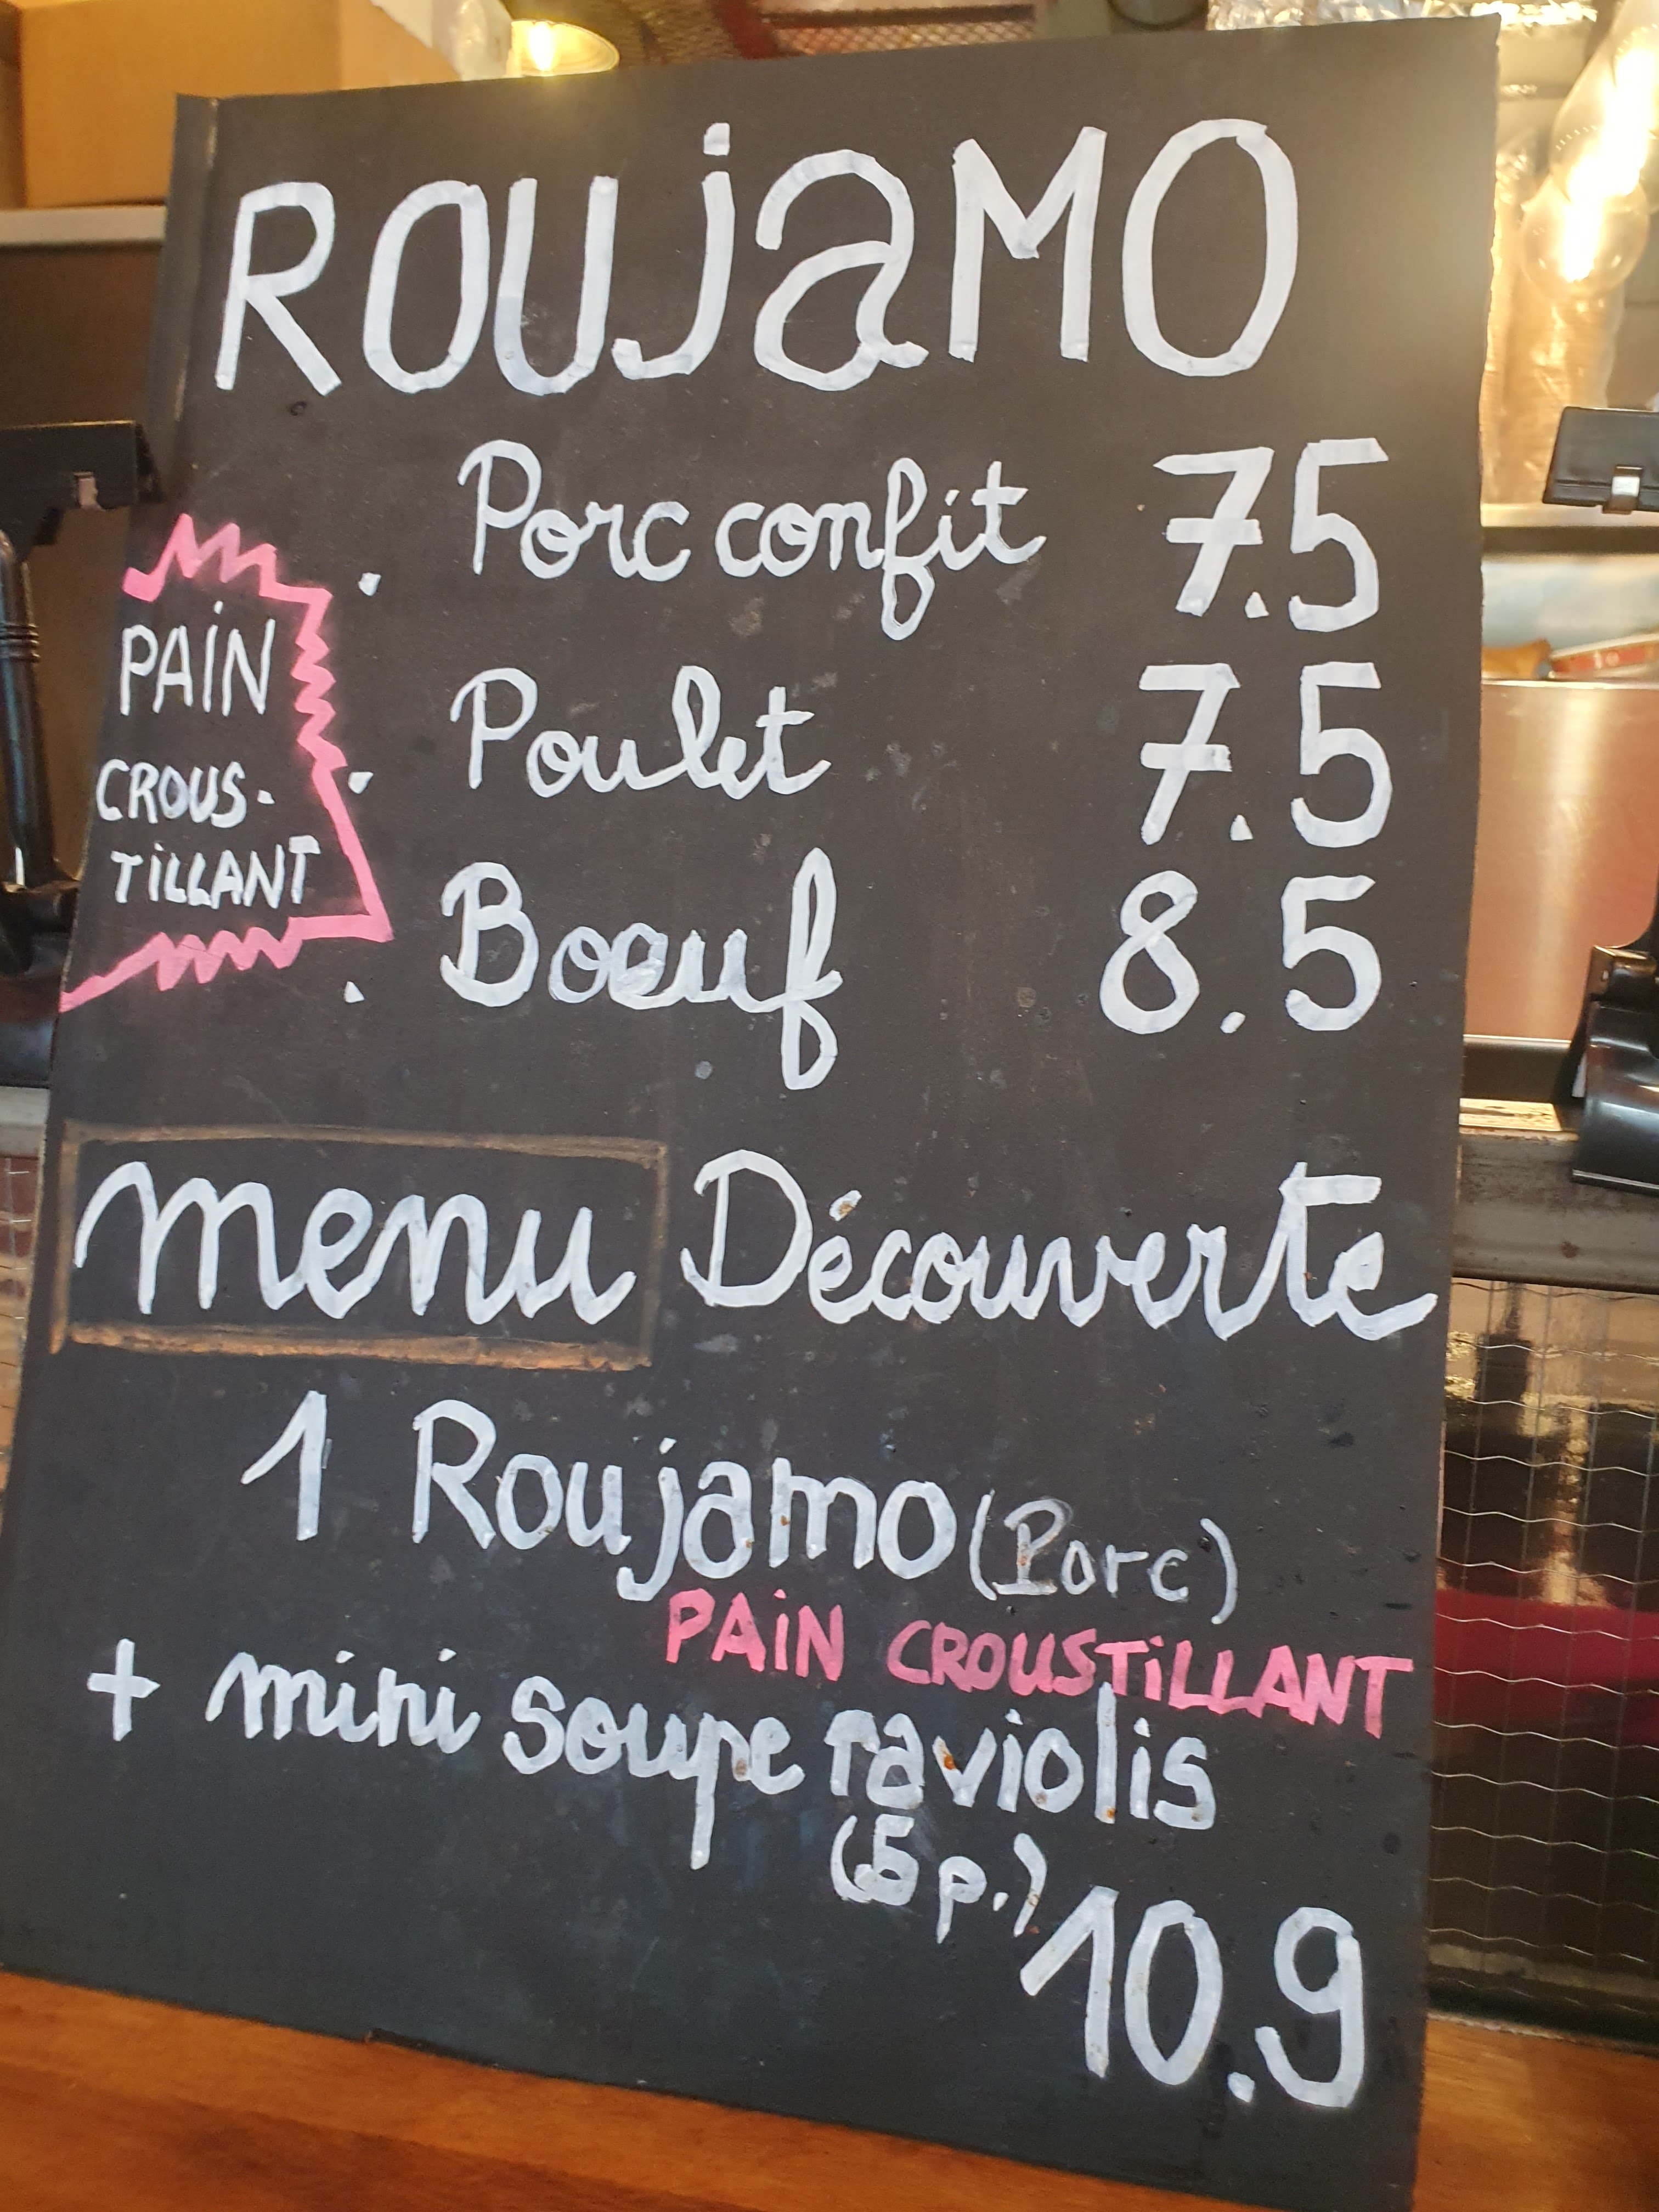 ROUJAMO
. Porc confit 7.5
. Poulet 7.5
. Boeuf 8.5
PAIN
CROUS-
TILLANT
menu Découverte
1 Roujamo (Porc)
PAIN CROUSTILLANT
+ mini soupe raviolis
(5 p.)
10.9